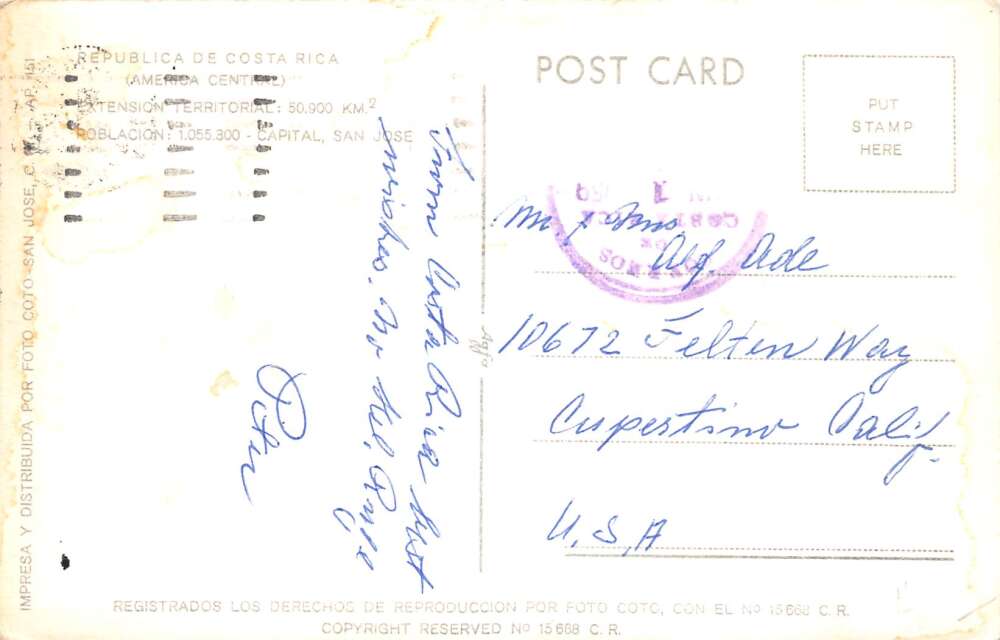 REPUBLICA DE COSTA RICA
(AMERICA CENTRAL)
EXTENSION TERRITORIAL: 50.900 KM.2
POBLACION: 1.055.800 - CAPITAL, SAN JOSE
IMPRESA Y DISTRIBUIDA POR FOTO COTO - SAN JOSE, C. AP. 151
From Costa Rica best
wishes. Mr
Peter
POST CARD
PUT
STAMP
HERE
Mr & Mrs
Alf. Ade
10672 Felten Way
Cupertino Calif.
U.S.A
REGISTRADOS LOS DERECHOS DE REPRODUCCION POR FOTO COTO, CON EL Nº 15668 C. R.
COPYRIGHT RESERVED Nº 15668 C. R.